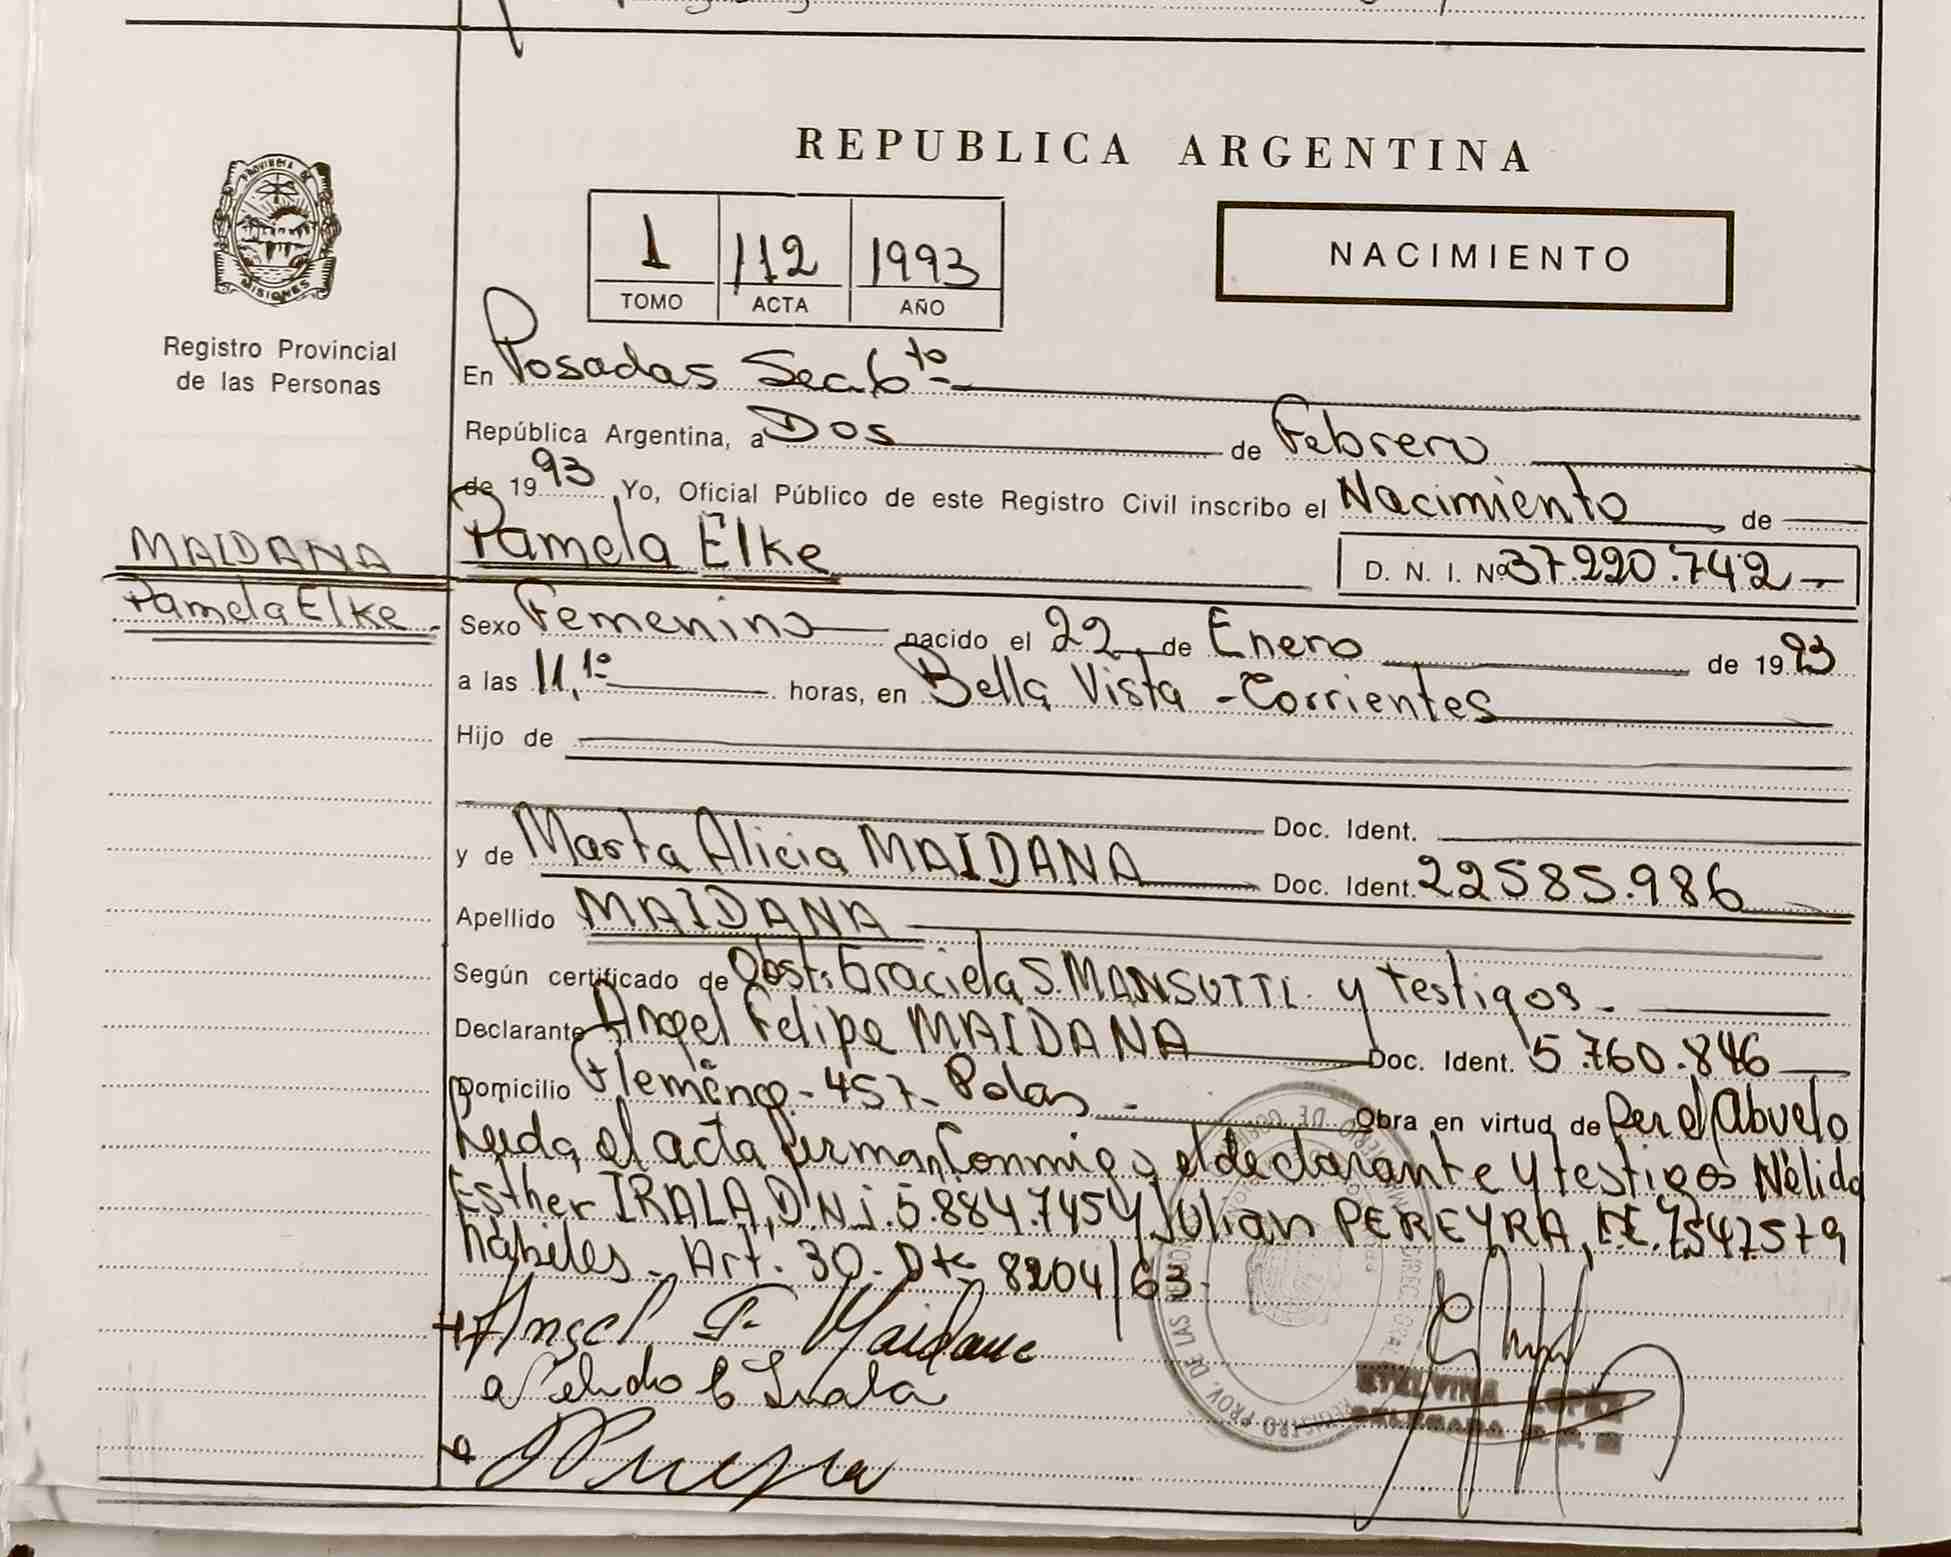 REPUBLICA ARGENTINA
PROVINCIA DE MISIONES
Registro Provincial
de las Personas
1 112 1993
TOMO ACTA AÑO
NACIMIENTO
En Posadas Sec. 6to
República Argentina, a Dos de Febrero
de 1993 Yo, Oficial Público de este Registro Civil inscribo el Nacimiento de
MAIDANA
Pamela Elke
Pamela Elke D. N. I. Nº 37.220.742
Sexo Femenino nacido el 22 de Enero de 1993
a las 11,10 horas, en Bella Vista - Corrientes
Hijo de
Doc. Ident.
y de Marta Alicia MAIDANA Doc. Ident. 22585.986
Apellido MAIDANA
Según certificado de Obst: Graciela S. MANSUTTI. y testigos.
Declarante Angel Felipe MAIDANA Doc. Ident. 5.760.846
Domicilio 457 Obra en virtud de Ser el Abuelo
Leida el acta firman Conmigo el declarante y testigos Nélida
Esther IRALA, D.N.i. 5.884.745 y Julian PEREYRA, L.E. 7547579
hábiles. Art. 30. Dto 8204/63.
Angel F. Maidana
Irala
ETELVINA LOPEZ
DELEGADA
REGISTRO PROV. DE LAS